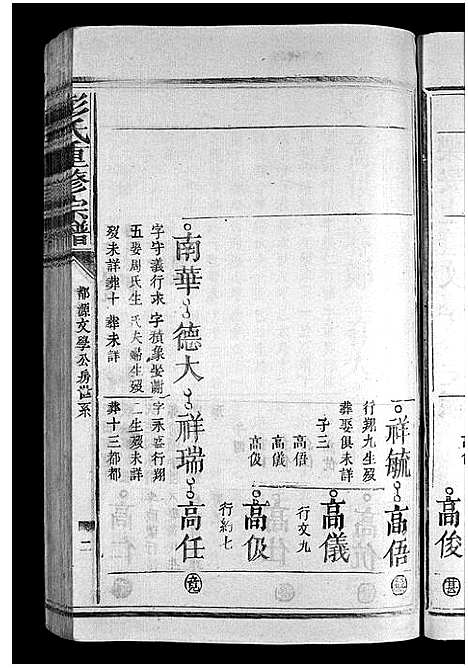 高俊
祥毓 高俉
行翔九生歿
葬娶俱未詳
子三
高俉
高儀
高伋
高儀
行文九
高伋
行約七
南華 德大 祥瑞 高任
字守義行求
五娶周氏生
歿未詳葬十
字積象娶謝
氏夫婦生歿
葬未詳
字永喜行翔
二生歿未詳
葬十三都都
彭氏重修宗譜
都源文學公房世系
二